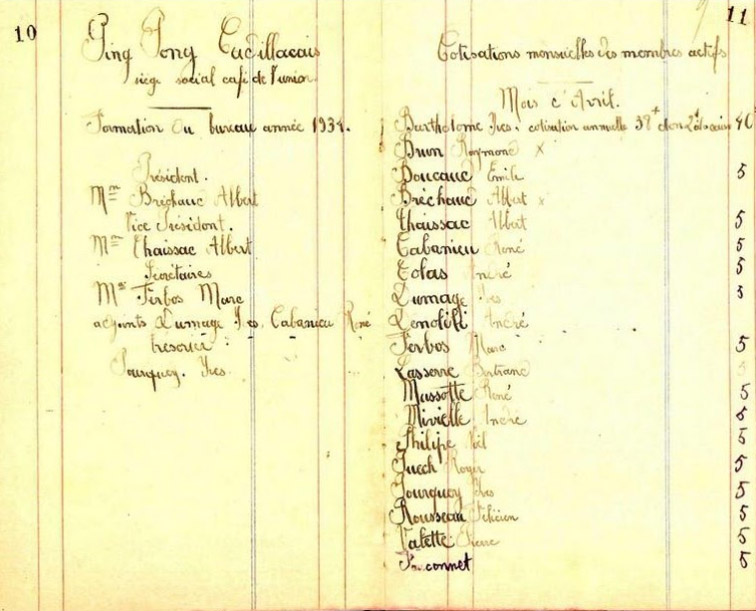 10
Ping Pong Cadillacais
siège social café de l'union.
Formation du bureau année 1934.
Président.
Mr Bréchaud Albert
Vice Président.
Mr Chaissac Albert
Secrétaires
Mr Ferbos Marc
adjoints Dumage Yves. Cabanieu René
tresorier :
Pourquey. Yves.
11
Cotisations mensuelles des membres actifs
Mois d'Avril.
Bartholome Yves. cotisation annuelle 38f 40
Brun Raymond x
Boucaud Emile 5
Bréchaud Albert x
Chaissac Albert 5
Cabanieu René 5
Colas André 5
Dumage Yves 5
André
Ferbos Marc 5
Lasserre Bertrand 5
Massotte René 5
Mivielle André 5
Philipe Noël 5
Puech Roger 5
Pourquey Yves 5
Rousseau Félicien 5
Valette Pierre 5
5